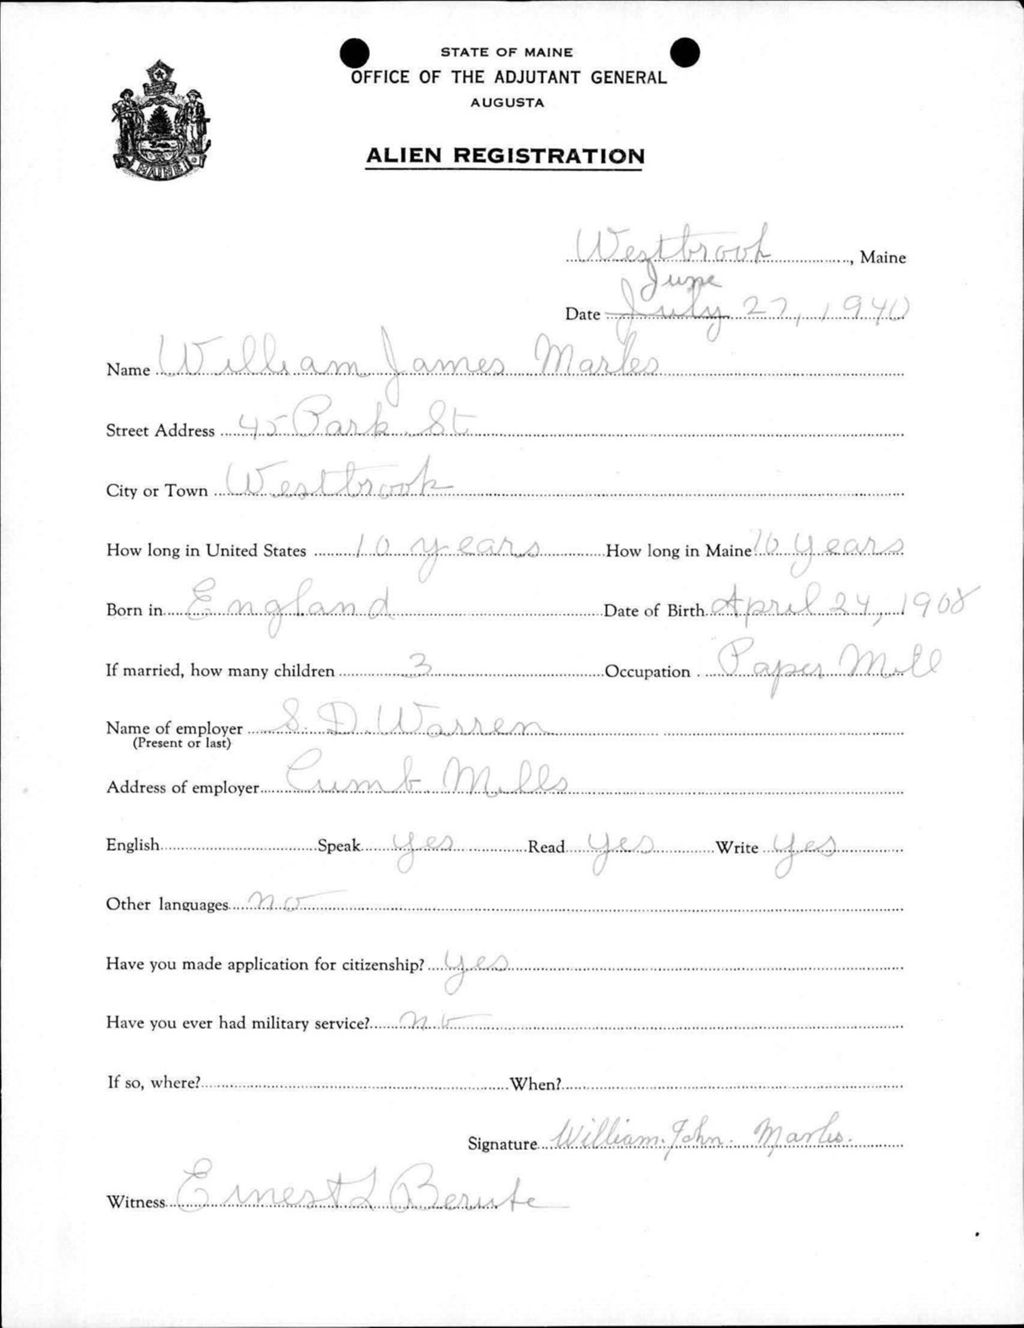 STATE OF MAINE
OFFICE OF THE ADJUTANT GENERAL
AUGUSTA
MAINE
ALIEN REGISTRATION
Westbrook, Maine
June
Date July 27, 1940
Name William James Marles
Street Address 45 Park St
City or Town Westbrook
How long in United States 10 years How long in Maine 10 years
Born in England Date of Birth April 24, 1908
If married, how many children 3 Occupation Paper Mill
Name of employer S. D. Warren
(Present or last)
Address of employer Cumb. Mills
English Speak yes Read yes Write yes
Other languages no
Have you made application for citizenship? yes
Have you ever had military service? no
If so, where? When?
Signature William. John. Marles.
Witness Ernest L